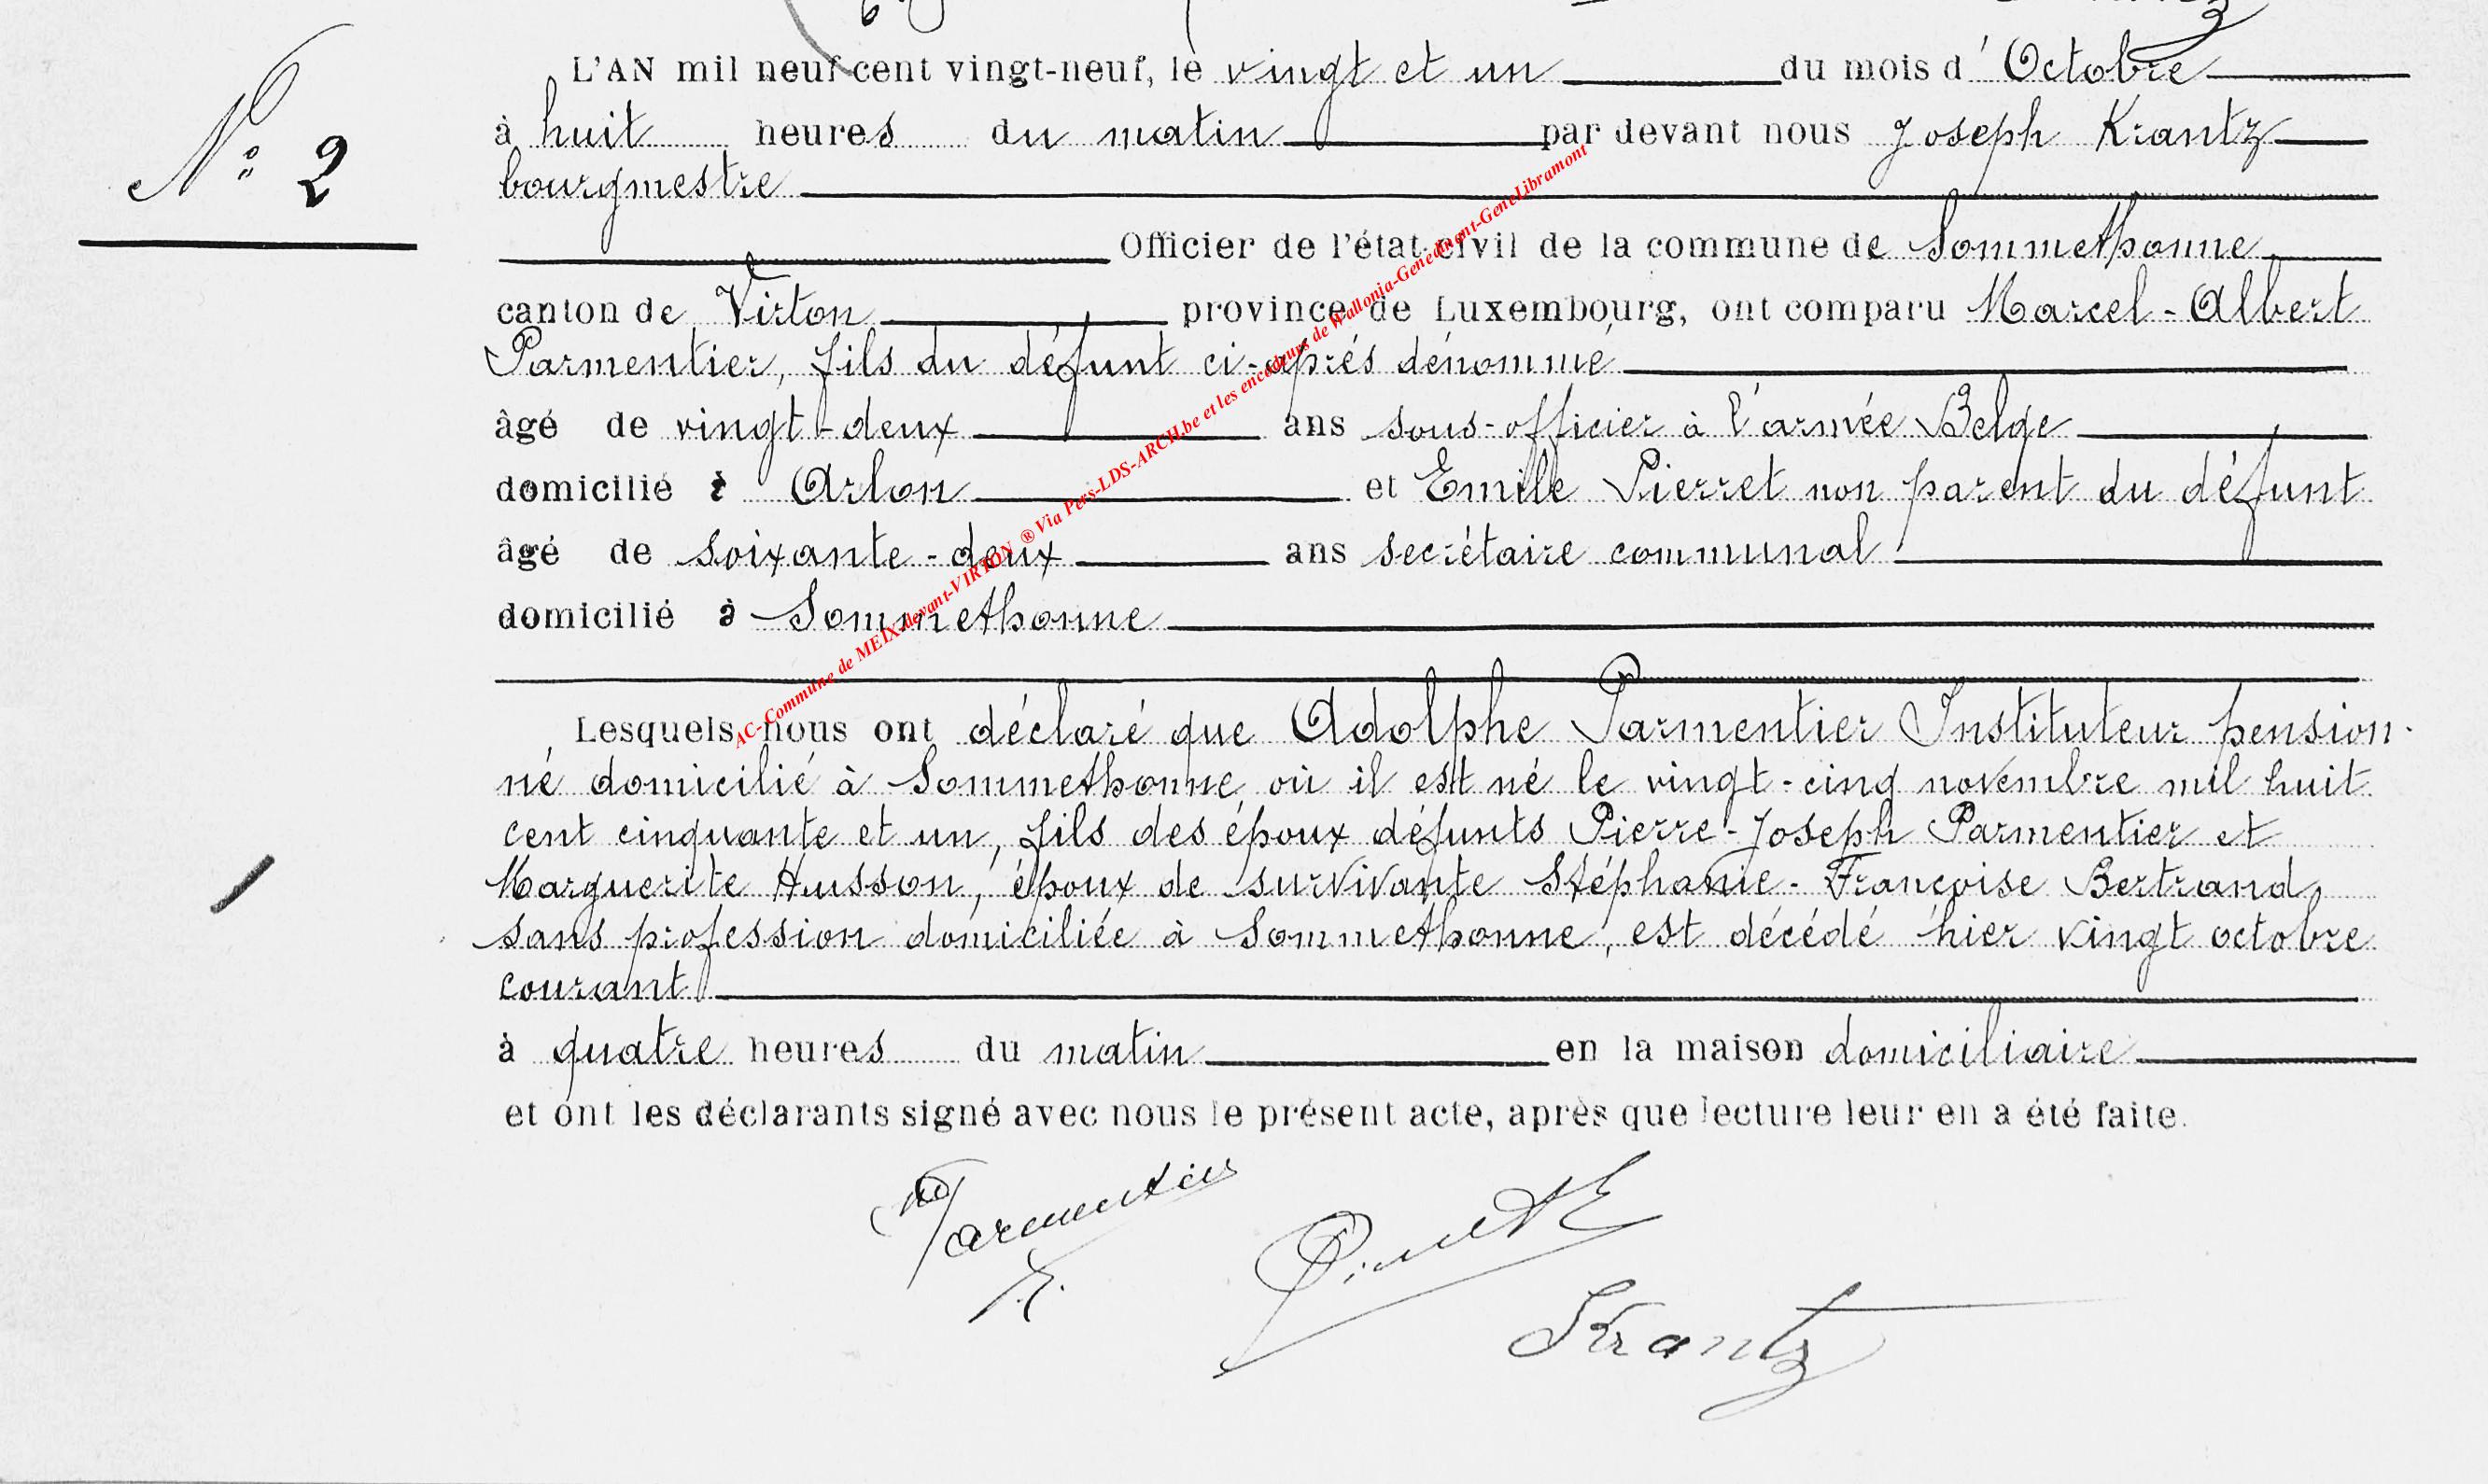 L'AN mil neuf cent vingt-neuf, le vingt et un du mois d'Octobre
N° 2
à huit heures du matin par devant nous Joseph Krantz
bourgmestre
Officier de l'état civil de la commune de Sommethonne
canton de Virton province de Luxembourg, ont comparu Marcel-Albert
Parmentier, fils du défunt ci-après dénommé
âgé de vingt-deux ans sous-officier à l'armée Belge
domicilié à Arlon et Emile Pierret non parent du défunt
âgé de soixante-deux ans secrétaire communal
domicilié à Sommethonne
AC-Commune de MEIX-devant-VIRTON ® Via Pers-LDS-ARCH.be et les encodeurs de Wallonia-Genedinant-GeneLibramont
Lesquels nous ont déclaré que Adolphe Parmentier Instituteur pension-
né domicilié à Sommethonne où il est né le vingt-cinq novembre mil huit
cent cinquante et un, fils des époux défunts Pierre-Joseph Parmentier et
Marguerite Husson, époux de survivante Stéphanie-Françoise Bertrand,
sans profession domiciliée à Sommethonne, est décédé hier vingt octobre
courant
à quatre heures du matin en la maison domiciliaire
et ont les déclarants signé avec nous le présent acte, après que lecture leur en a été faite.
Parmentier
Pierret E
Krantz